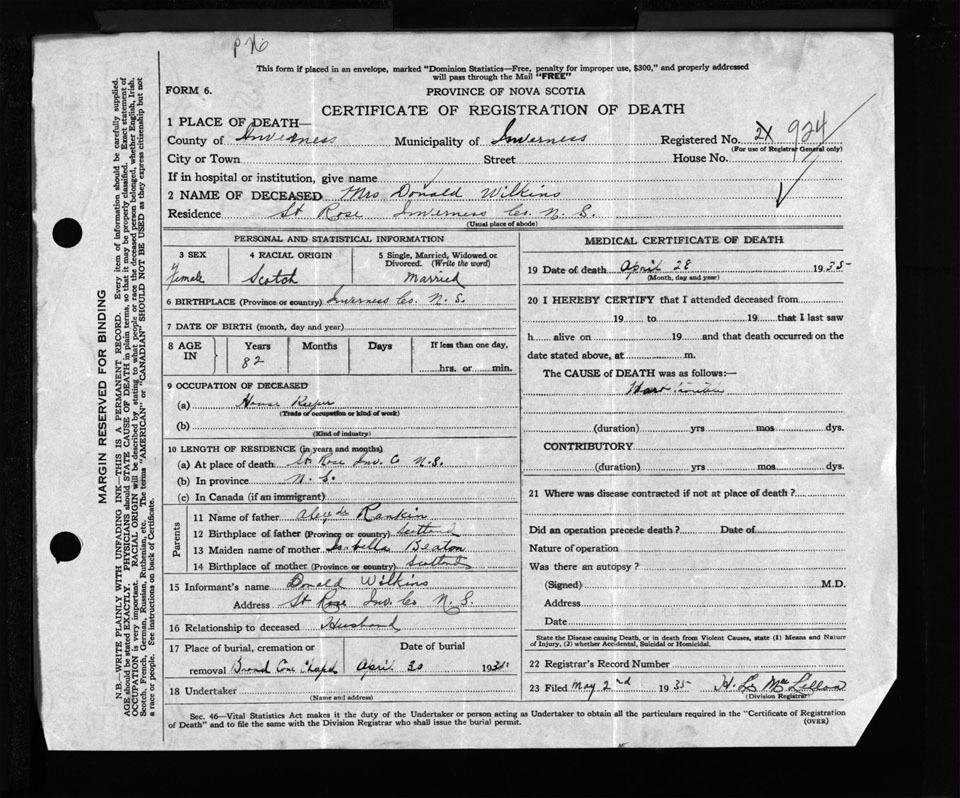 This form if placed in an envelope, marked "Dominion Statistics—Free, penalty for improper use, $300," and properly addressed
will pass through the Mail "FREE"
FORM 6.
PROVINCE OF NOVA SCOTIA
CERTIFICATE OF REGISTRATION OF DEATH
1 PLACE OF DEATH—
County of Inverness Municipality of Inverness Registered No. 924
(For use of Registrar General only)
City or Town Street House No.
If in hospital or institution, give name
2 NAME OF DECEASED Mrs Donald Wilkins
Residence St Rose Inverness Co. N. S.
(Usual place of abode)
PERSONAL AND STATISTICAL INFORMATION
3 SEX
Female
4 RACIAL ORIGIN
Scotch
5 Single, Married, Widowed or
Divorced. (Write the word)
Married
6 BIRTHPLACE (Province or country) Inverness Co. N. S.
7 DATE OF BIRTH (month, day and year)
8 AGE IN
Years
82
Months
Days
If less than one day,
hrs. or min.
9 OCCUPATION OF DECEASED
(a) House Keeper
(Trade or occupation or kind of work)
(b)
(Kind of industry)
10 LENGTH OF RESIDENCE (in years and months)
(a) At place of death St Rose Inv. C N.S.
(b) In province N. S.
(c) In Canada (if an immigrant)
Parents
11 Name of father Rankin
12 Birthplace of father (Province or country) Scotland
13 Maiden name of mother Isabella Beaton
14 Birthplace of mother (Province or country) Scotland
15 Informant's name Donald Wilkins
Address St Rose Inv. Co N. S.
16 Relationship to deceased Husband
17 Place of burial, cremation or Date of burial
removal Broad Cove Chapel April 30 193
18 Undertaker
(Name and address)
MEDICAL CERTIFICATE OF DEATH
19 Date of death April 28 1935
(Month, day and year)
20 I HEREBY CERTIFY that I attended deceased from
19 to 19 that I last saw
h alive on 19 and that death occurred on the
date stated above, at m.
The CAUSE of DEATH was as follows:—
(duration) yrs mos dys.
CONTRIBUTORY
(duration) yrs mos dys.
21 Where was disease contracted if not at place of death?
Did an operation precede death? Date of
Nature of operation
Was there an autopsy?
(Signed) M.D.
Address
Date
State the Disease causing Death, or in death from Violent Causes, state (1) Means and Nature
of Injury, (2) whether Accidental, Suicidal or Homicidal.
22 Registrar's Record Number
23 Filed May 2nd 1935 H. L. MacLellan
(Division Registrar)
Sec. 46—Vital Statistics Act makes it the duty of the Undertaker or person acting as Undertaker to obtain all the particulars required in the "Certificate of Registration
of Death" and to file the same with the Division Registrar who shall issue the burial permit.
(OVER)
MARGIN RESERVED FOR BINDING
N.B.—WRITE PLAINLY WITH UNFADING INK—THIS IS A PERMANENT RECORD. Every item of information should be carefully supplied.
AGE should be stated EXACTLY. PHYSICIANS should STATE CAUSE OF DEATH in plain terms, so that it may be properly classified. Exact statement of
OCCUPATION is very important. RACIAL ORIGIN will be described by stating to what people or race the deceased person belonged, whether English, Irish,
Scotch, French, German, Russian, Ruthenian, etc. The terms "AMERICAN" or "CANADIAN" SHOULD NOT BE USED as they express citizenship but not
a race or people. See instructions on back of Certificate.